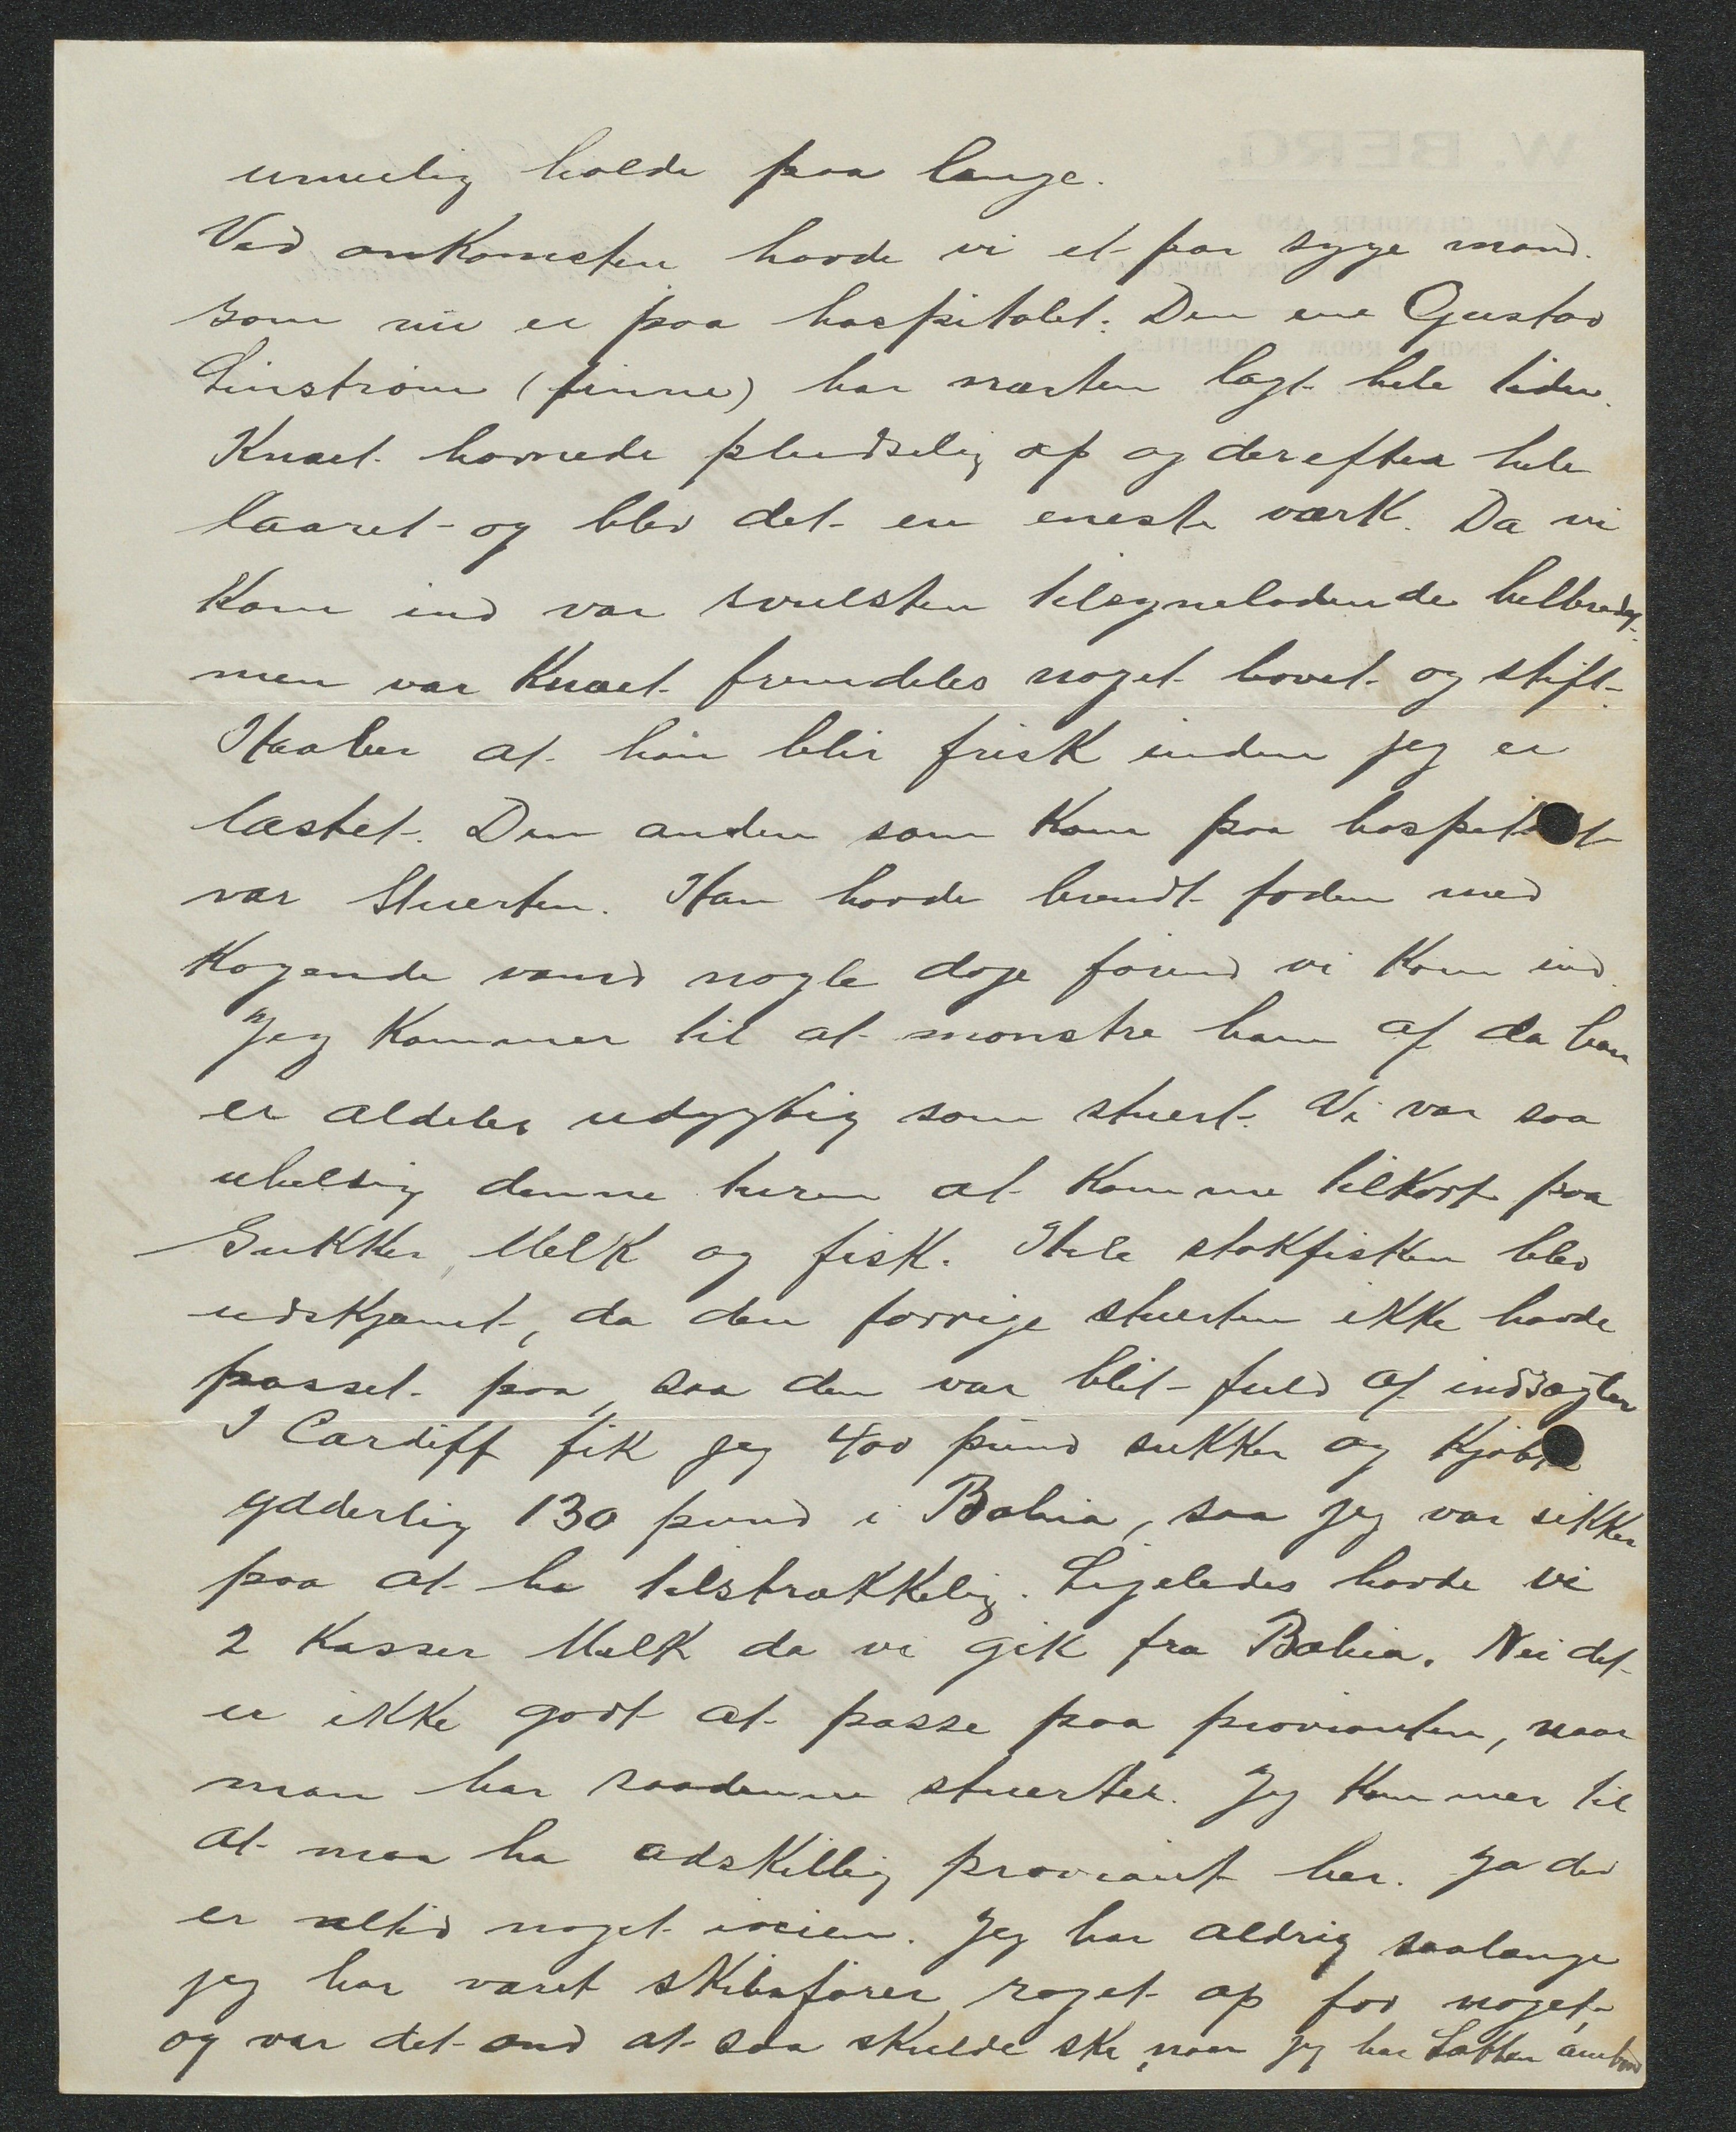 umulig holde paa længe.
Ved ankomsten havde vi et par syge mænd.
som nu er paa hospitalet. Den ene Gustav
Linstrøm (finne) har næsten lagt hele tiden.
Knæet hovnede pludselig op og derefter hele
laaret og blev det en eneste værk. Da vi
kom ind var svulsten tilsyneladende helbredet
men var Knæet fremdeles noget hovet og stift.
Haaber at han blir frisk inden jeg er
lastet. Den anden som kom paa hospitalet
var Stuerten. Han havde brendt foden med
kogende vand nogle dage førend vi kom ind.
Jeg kommer til at mønstre ham af da han
er aldeles udygtig som stuert. Vi var saa
uheldig denne turen at komme tilkort paa
Sukker, Melk og fisk. Hele stokfisken blev
udskjæmt, da den forrige stuerten ikke havde
passet paa, saa den var blit fuld af indsægter
I Cardiff fik jeg 400 pund sukker og kjøbte
ydderlig 130 pund i Bahia, saa jeg var sikker
paa at ha tilstrækkelig. Ligeledes havde vi
2 kasser Melk da vi gik fra Bahia. Nei det
er ikke godt at passe paa provianten, naar
man har saadenne stuerter. Jeg kommer til
at maa ha adskillig proviant her. Ja der
er altid noget iveien. Jeg har aldrig saalænge
jeg har været skibsfører, roget op for noget,
og var det ond at saa skulde ske, naar jeg har Løtten ombord